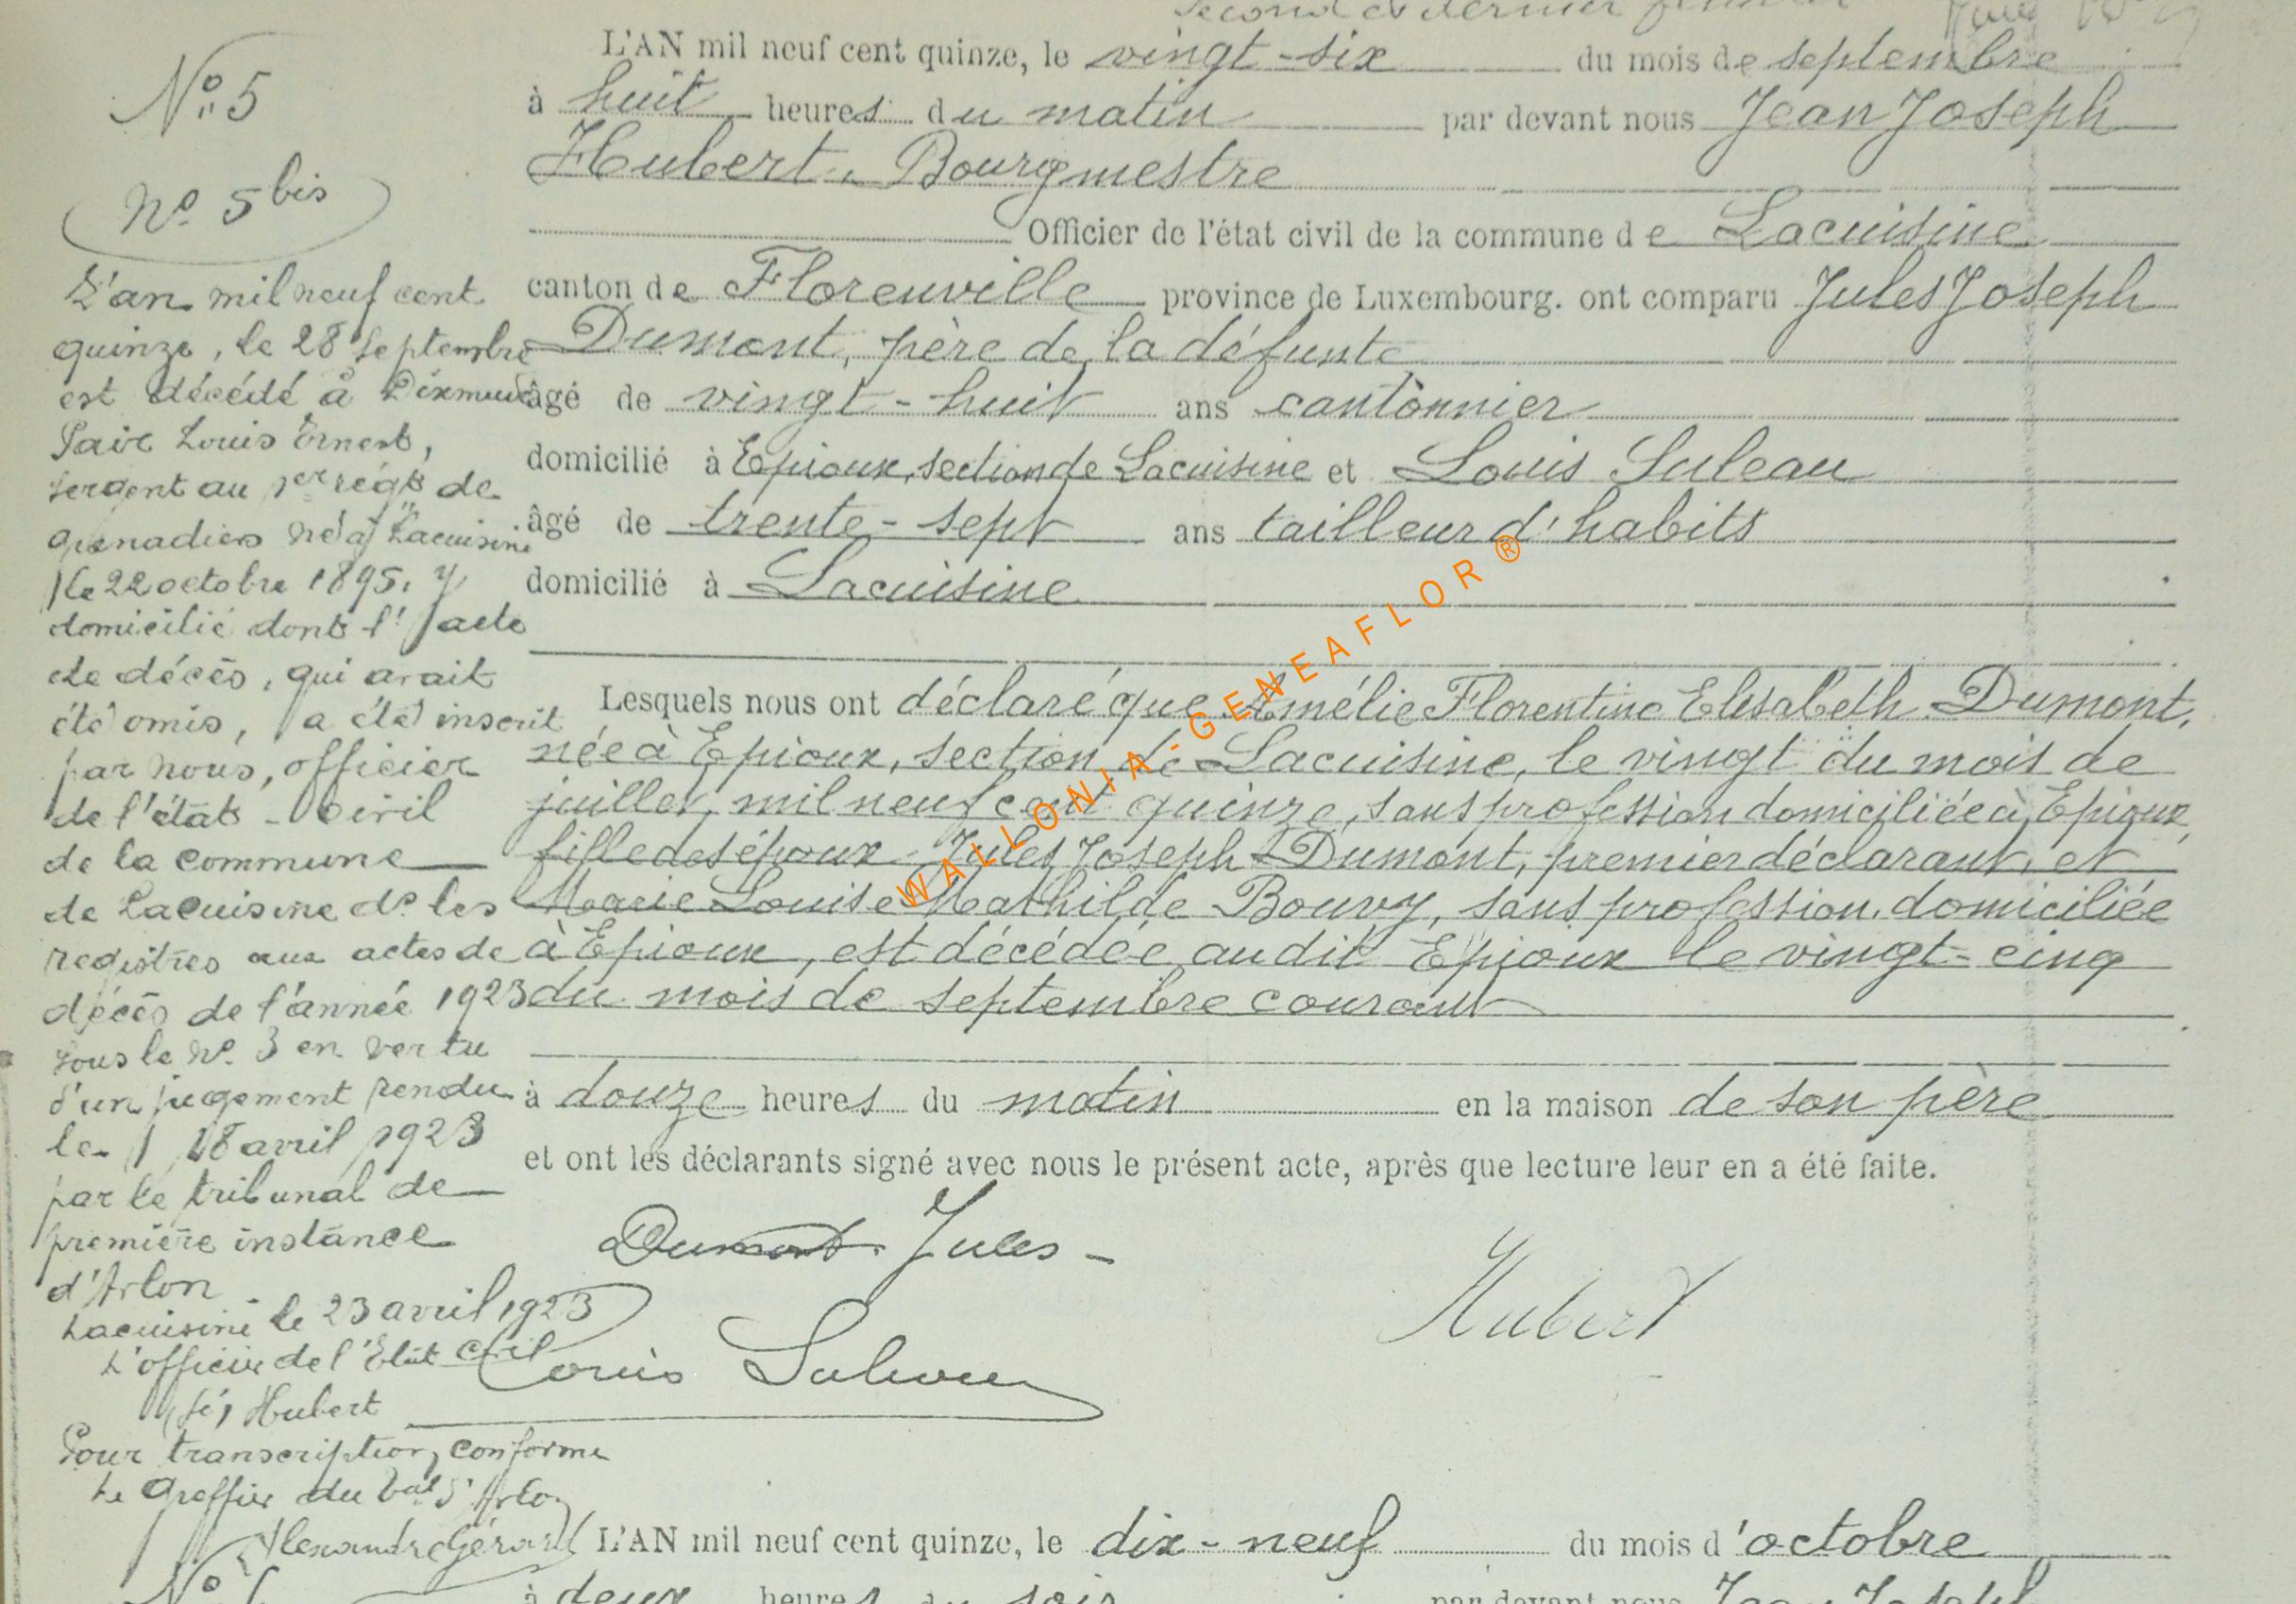 Second et dernier
L'AN mil neuf cent quinze, le vingt-six du mois de septembre
à huit heures du matin par devant nous Jean Joseph
Hubert, Bourgmestre
Officier de l'état civil de la commune de Lacuisine
canton de Florenville province de Luxembourg. ont comparu Jules Joseph
Dumont, père de la défunte
âgé de vingt-huit ans cantonnier
domicilié à Epioux, section de Lacuisine et Louis Suleau
âgé de trente-sept ans tailleur d'habits
domicilié à Lacuisine
Lesquels nous ont déclaré que Amélie Florentine Elisabeth Dumont,
née à Epioux, section de Lacuisine, le vingt du mois de
juillet, mil neuf cent quinze, sans profession domiciliée à Epioux,
fille des époux Jules Joseph Dumont, premier déclarant, et
Marie Louise Mathilde Bouvy, sans profession, domiciliée
à Epioux, est décédée audit Epioux le vingt-cinq
du mois de septembre courant
à douze heures du matin en la maison de son père
et ont les déclarants signé avec nous le présent acte, après que lecture leur en a été faite.
Dumont Jules
Hubert
Louis Suleau
N° 5
N° 5 bis
L'an mil neuf cent
quinze, le 28 septembre
est décédé à Dixmude
Louis Ernest,
sergent au 1er régt de
grenadiers né à Lacuisine
le 22 octobre 1895, y
domicilié dont l'acte
de décès, qui avait
été omis, a été inscrit
par nous, officier
de l'état-civil
de la commune
de Lacuisine ds les
registres aux actes de
décès de l'année 1923
sous le n° 3 en vertu
d'un jugement rendu
le 18 avril 1923
par le tribunal de
première instance
d'Arlon
Lacuisine le 23 avril 1923
L'officier de l'Etat civil
(sé) Hubert
Pour transcription conforme
Le Greffier du bal d'Arlon
Alexandre Gérard
L'AN mil neuf cent quinze, le dix-neuf du mois d'octobre
à deux heures du soir par devant nous Jean Joseph
N° 6
WALLONIA-GENEAFLOR ®